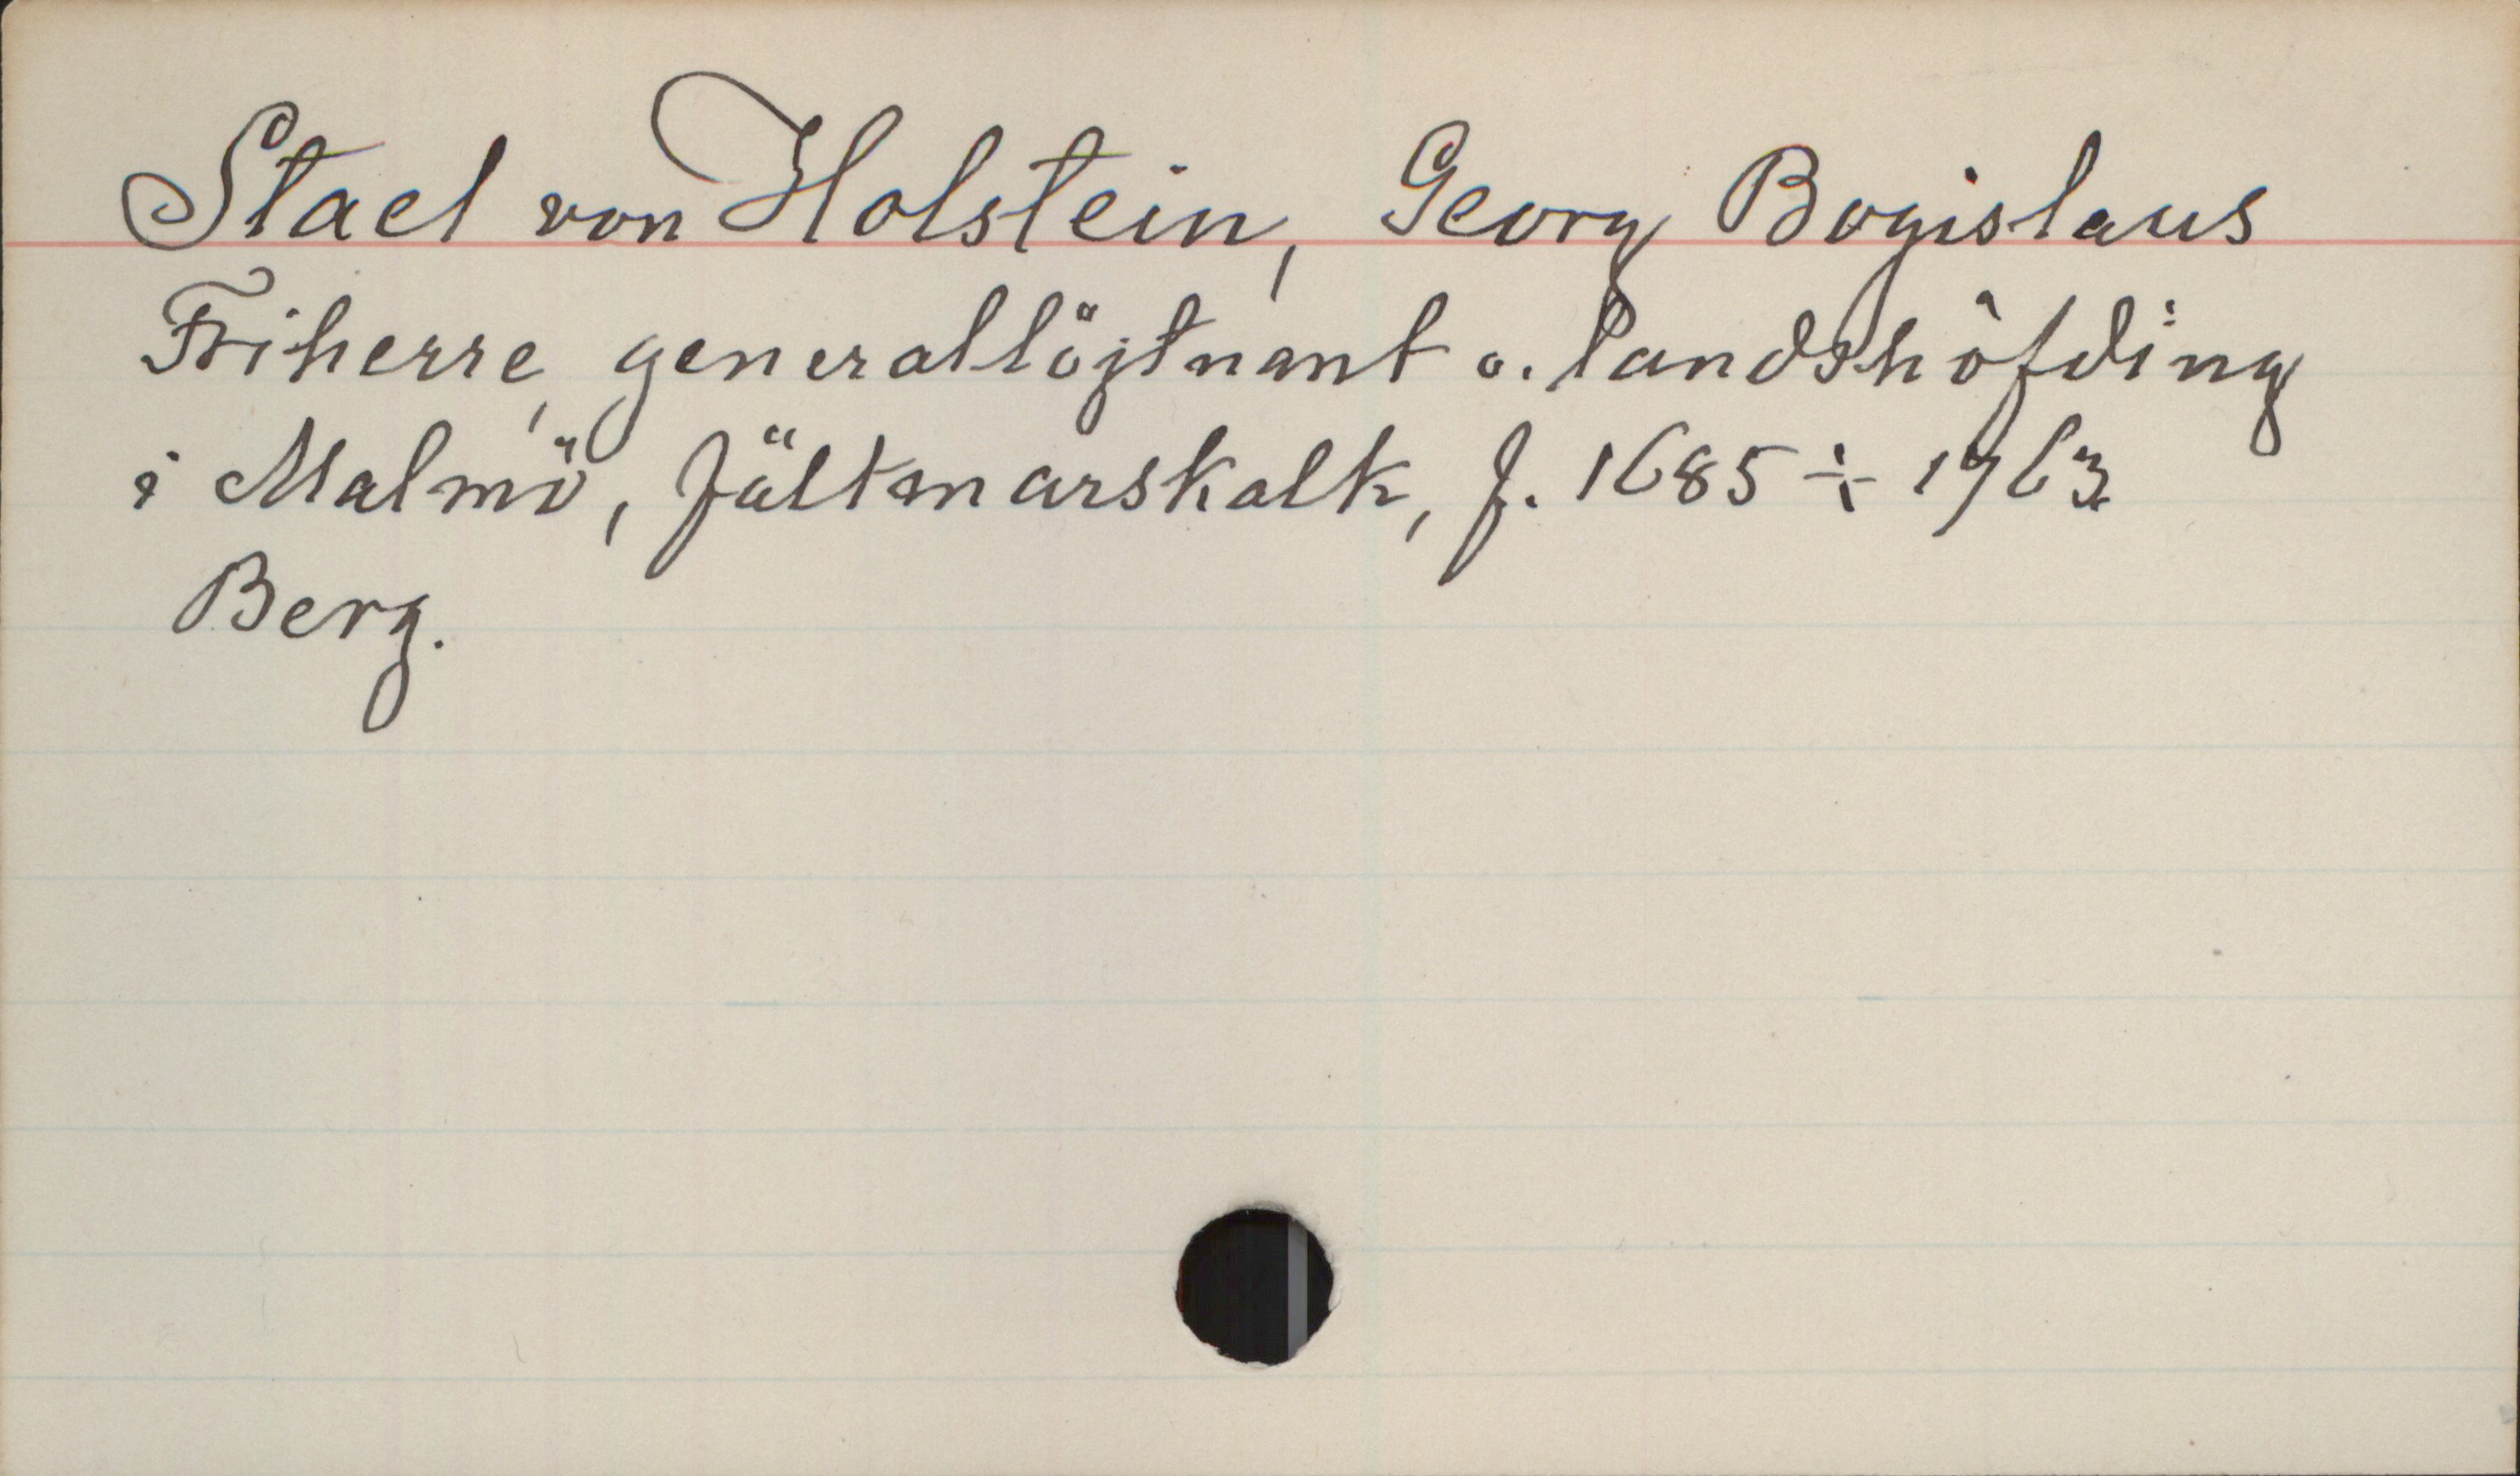 Stael von Holstein, Georg Bogislaus
Friherre, generallöjtnant o. landshöfding
i Malmö, fältmarskalk, f. 1685 ÷ 1763
Berg.